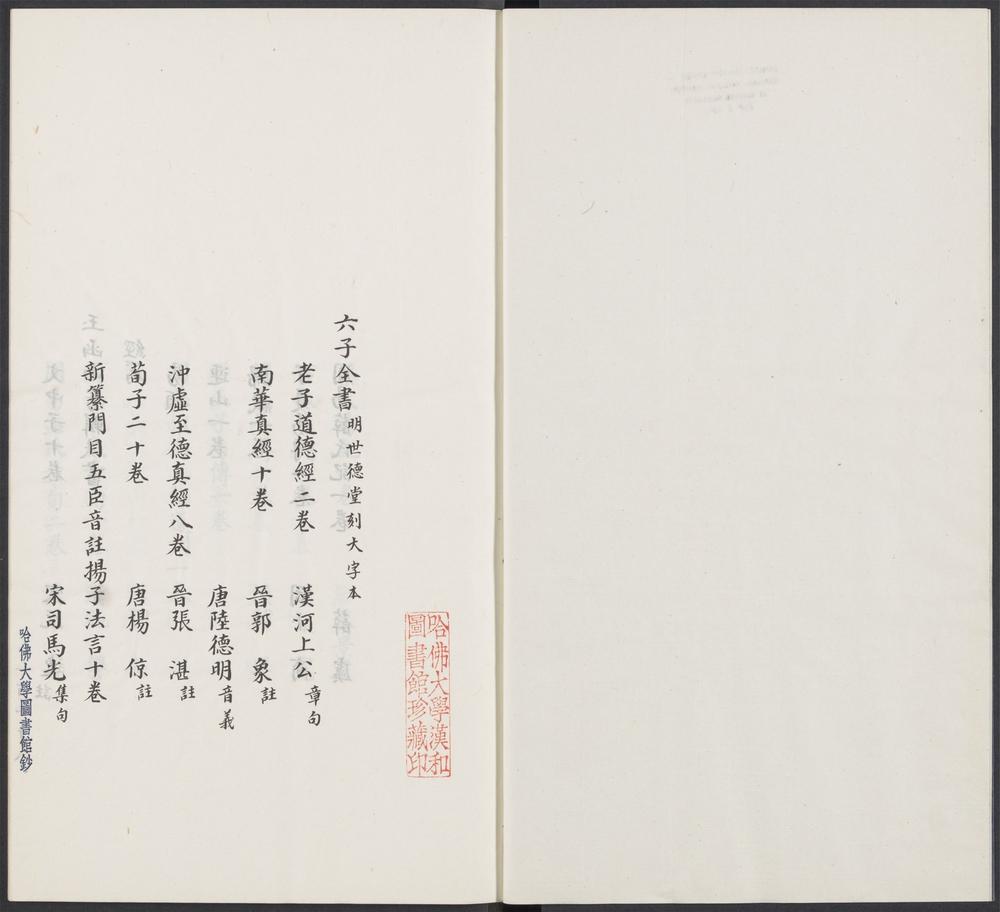 哈佛大學漢和
圖書館珍藏印
六子全書 明世德堂刻大字本
老子道德經二卷 漢河上公章句
南華真經十卷 晉郭 象註
唐陸德明音義
沖虛至德真經八卷 晉張 湛註
荀子二十卷 唐楊 倞註
新纂門目五臣音註揚子法言十卷
宋司馬光集句
哈佛大學圖書館鈔